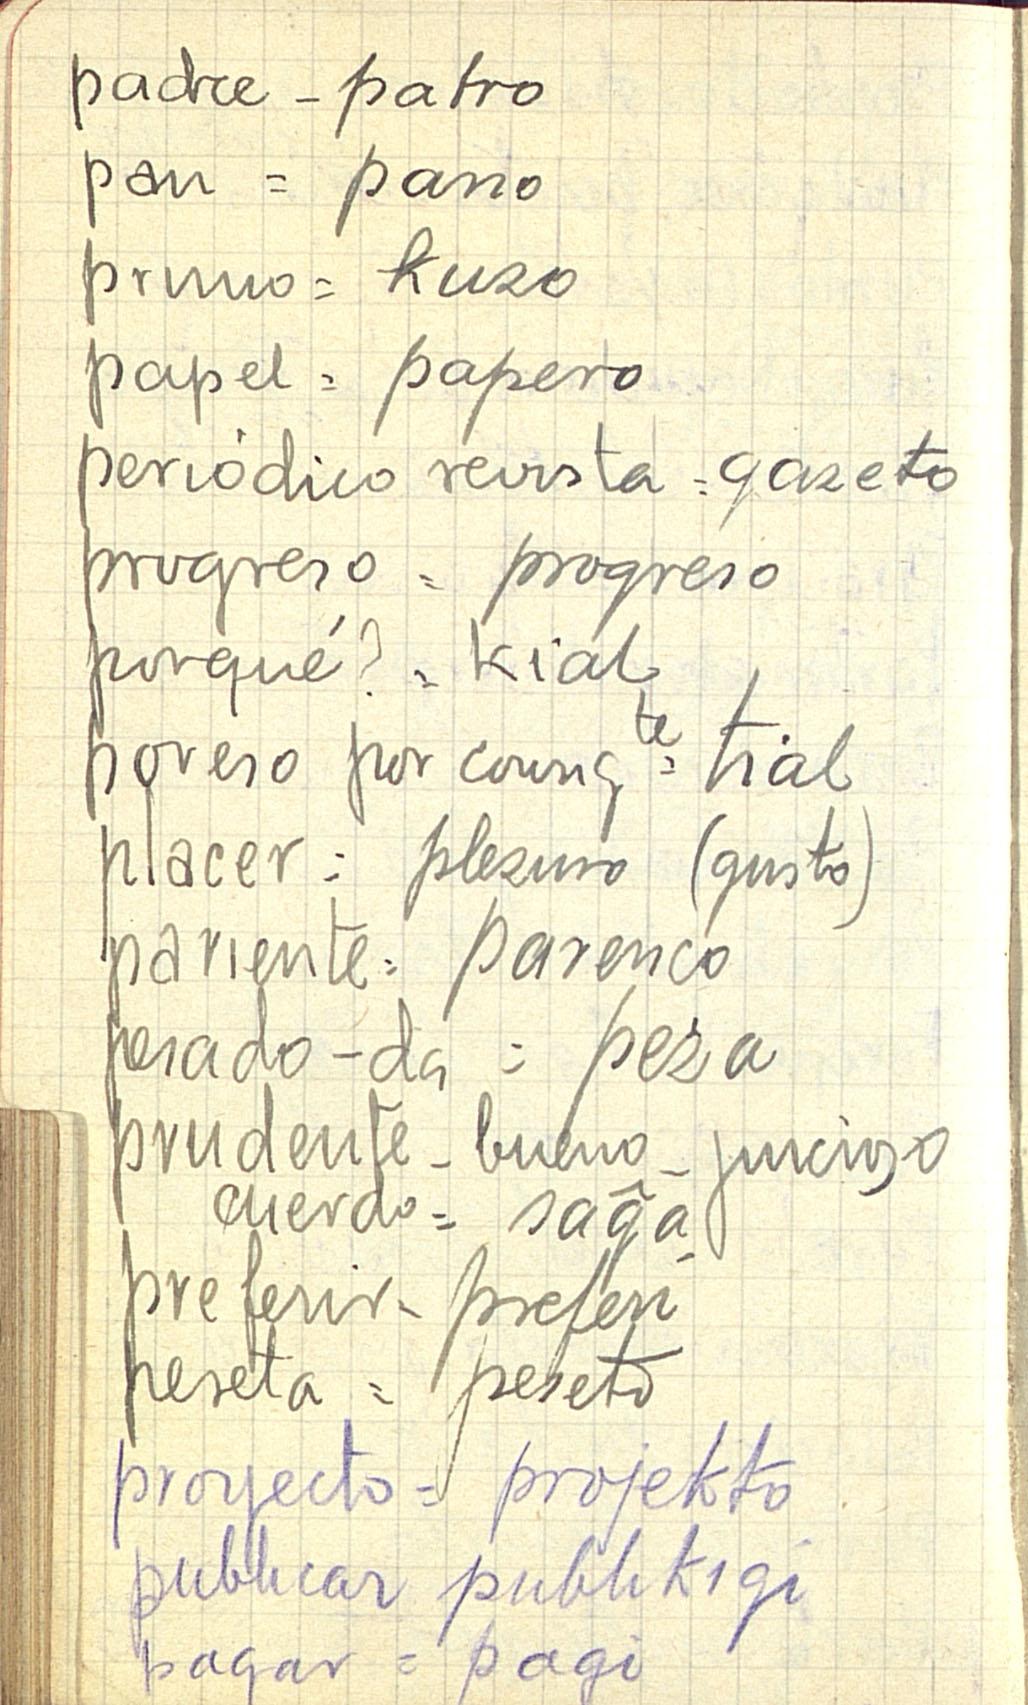 padre - patro
pan = pano
primo = kuzo
papel = papero
periódico revista = gazeto
progreso = progreso
porqué? = kial
por eso por consigte = tial
placer = plezuro (gusto)
pariente = parenco
pesado - da = peza
prudente - bueno - juicioso
cuerdo = saĝa
preferir - preferi
peseta = peseto
proyecto = projekto
publicar publikigi
pagar = pagi